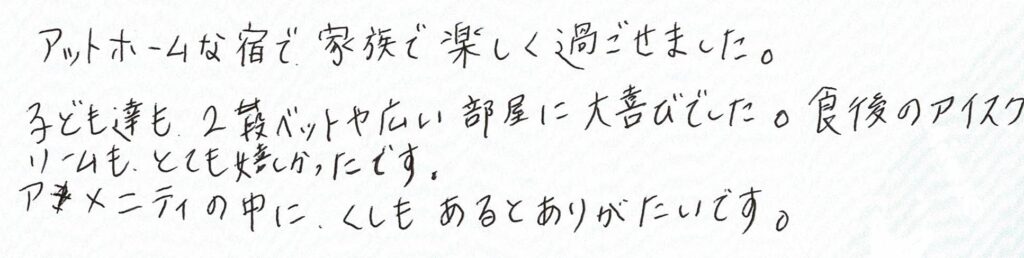 アットホームな宿で、家族で楽しく過ごせました。
子ども達も、2段ベットや広い部屋に大喜びでした。食後のアイスク
リームも、とても嬉しかったです。
アメニティの中に、くしもあるとありがたいです。